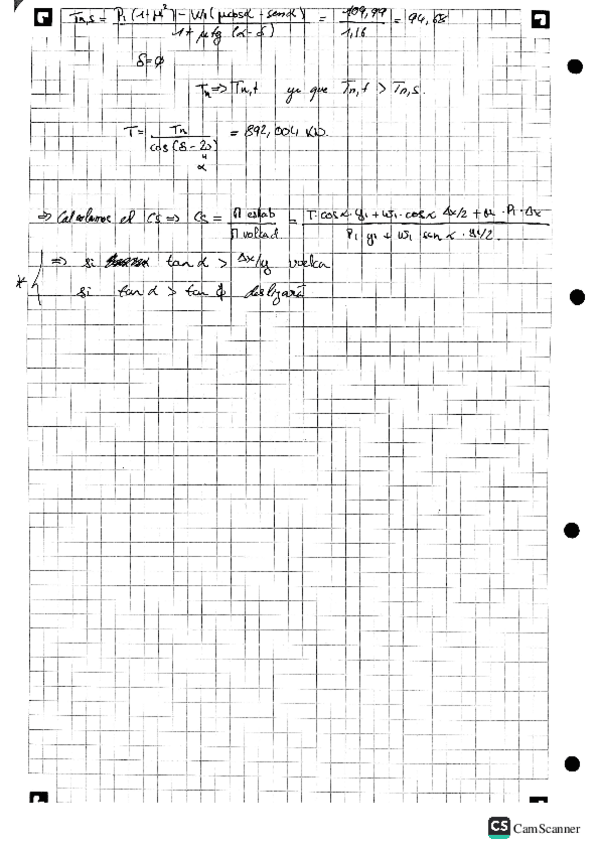 Tn,s = P1(1+μ²) - W1(μcosα - senα) / 1+ μtg(α-δ) = 109,99 / 1,16 = 94,68
δ=ϕ
Tn => Tn,t ya que Tn,t > Tn,s.
T = Tn / cos(δ-2α) = 892,004 KN.
α
=> Calculamos el CS => CS = M estab / M volcad = T·cosα·y1 + W1·cosα Δx/2 + μ·P1·Δx / P1·y1 + W1 senα·y1/2
* => si tanα > Δx/y vuelca
si tanα > tanϕ deslizará
CS CamScanner